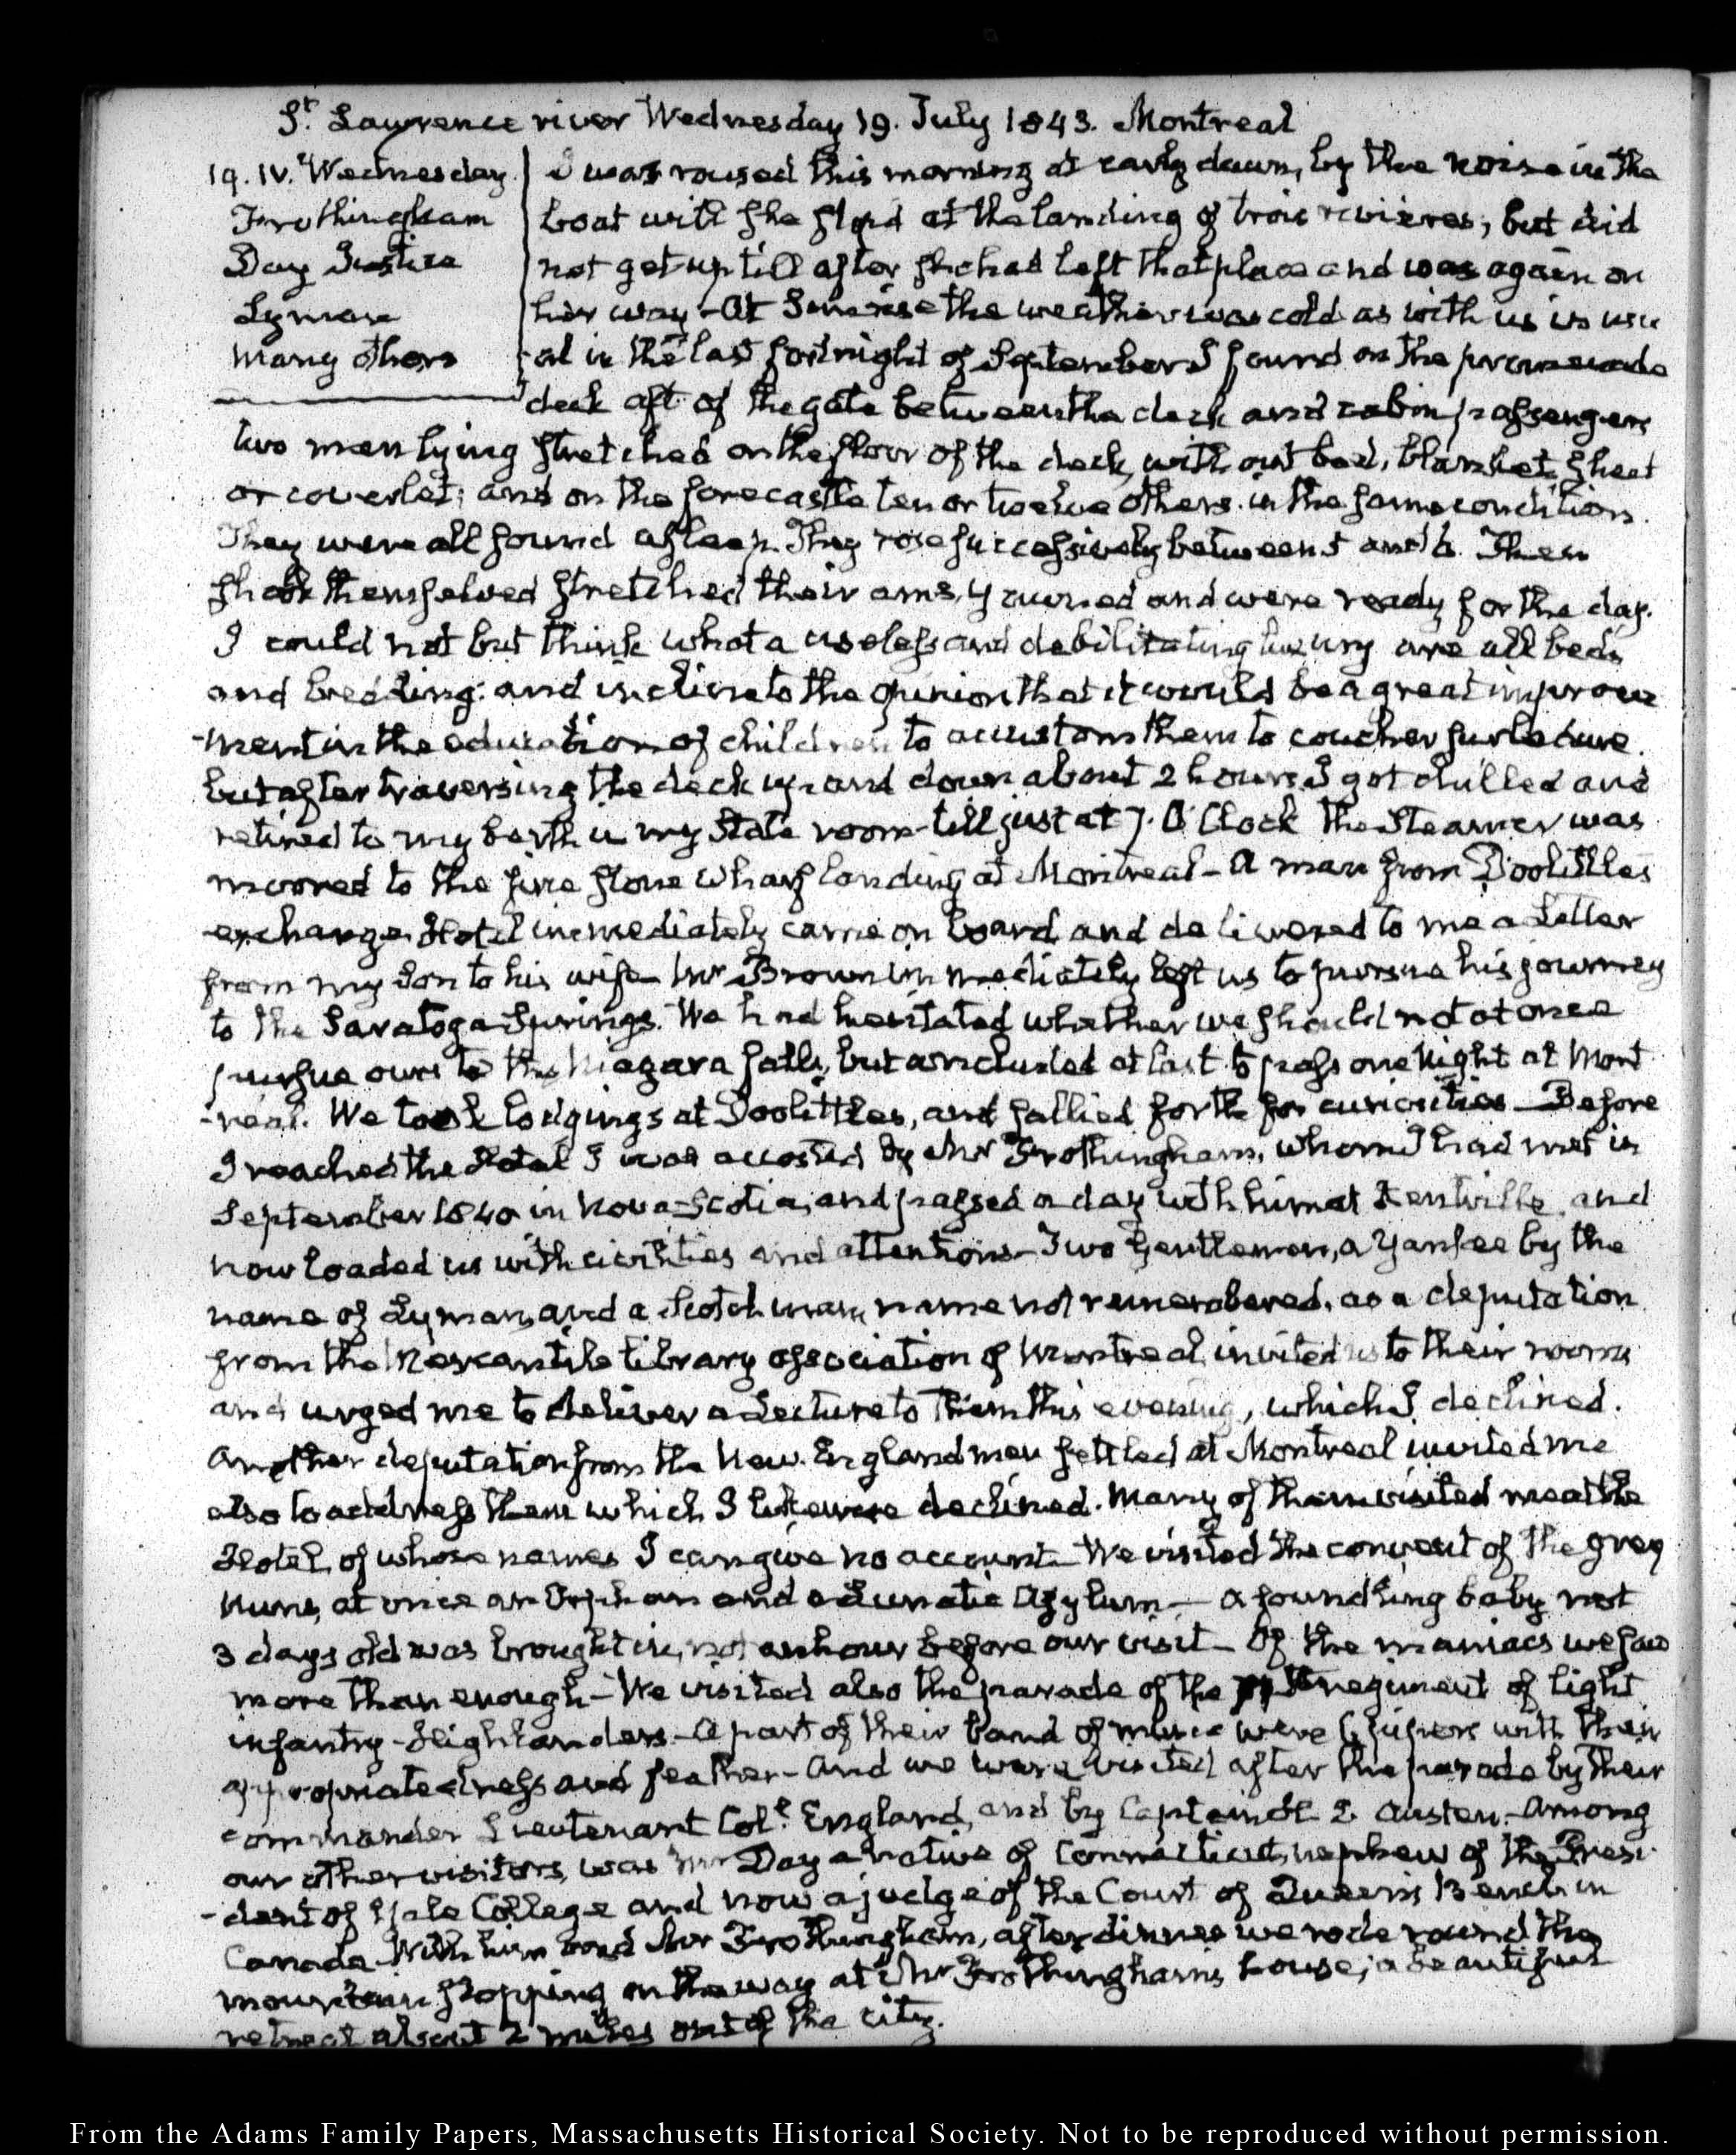 St. Lawrence river Wednesday 19. July 1843. Montreal
19. IV. Wednesday.
Frothingham
Day Justice
Lyman
Many others
I was roused this morning at early dawn, by the noise in the
boat while she stop'd at the landing of trois rivieres; but did
not get up till after she had left that place and was again on
her way - At Sunrise the weather was cold as with us is usu
-al in the last fortnight of September I found on the promenade
deck aft of the gate between the deck and cabin passengers
two men lying stretched on the floor of the deck, without bed, blanket, sheet
or coverlet; and on the forecastle ten or twelve others in the same condition.
They were all sound asleep. They rose successively between 5 and 6. Then
shook themselves stretched their arms, yawned and were ready for the day.
I could not but think what a useless and debilitating luxury are all beds
and bedding: and incline to the opinion that it would be a great improve
-ment in the education of children to accustom them to coucher sur la dure.
but after traversing the deck up and down about 2 hours, I got chilled and
retired to my berth in my State room till just at 7. O'Clock the Steamer was
moored to the fine stone wharf landing at Montreal - A man from Doolittles
exchange Hotel immediately came on board and delivered to me a Letter
from my Son to his wife Mr Brown immediately left us to pursue his journey
to the Saratoga Springs. We had hesitated whether we should not at once
pursue ours to the Niagara falls, but concluded at last to pass one Night at Mont
-real. We took lodgings at Doolittles, and sallied forth for curiosities - Before
I reached the Hotel I was accosted by Mr Frothingham, whom I had met in
September 1840 in Nova-Scotia, and passed a day with him at Kentville, and
now loaded us with civilities and attentions - Two Gentlemen, a Yankee by the
name of Lyman, and a Scotchman, name not remembered, as a deputation
from the Mercantile Library association of Montreal, invited us to their rooms
and urged me to deliver a Lecture to them this evening, which I declined.
Another deputation from the New-England men settled at Montreal invited me
also to address them which I likewise declined. Many of them visited me at the
Hotel, of whose names I can give no account - We visited the convent of the grey
Nuns, at once an Orphan and a Lunatic Asylum - a foundling baby not
3 days old was brought in, not an hour before our visit - Of the maniacs we saw
more than enough - We visited also the parade of the regiment of light
infantry - Highlanders - A part of their band of music were bagpipers with their
appropriate dress and feather - And we were visited after the parade by their
commander Lieutenant Col. England, and by Captain H. Austen. Among
our other visitors, was Mr Day a native of Connecticut, nephew of the Presi-
-dent of Yale College and now a judge of the Court of Queen's Bench in
Canada. With him and Mr Frothingham, after dinner we rode round the
mountain stopping on the way at Mr Frothingham's house; a beautiful
retreat about 2 miles out of the city.
From the Adams Family Papers, Massachusetts Historical Society. Not to be reproduced without permission.